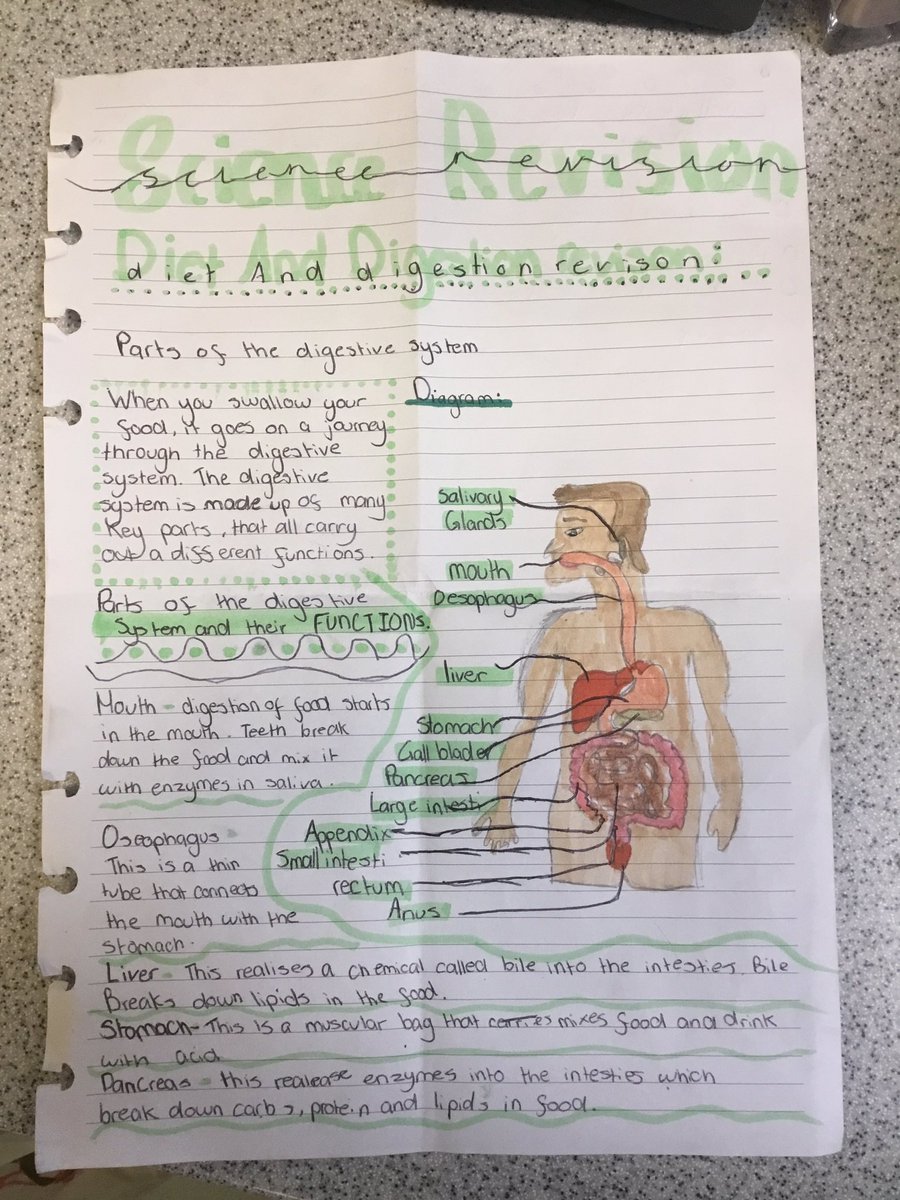 Science Revision
science revision
Diet And Digestion revison:
diet And digestion revison:
Parts of the digestive system
When you swallow your
food, it goes on a journey
through the digestive
system. The digestive
system is made up of many
key parts, that all carry
out a different functions.
Diagram:
Salivary
Glands
mouth
Oesophagus
liver
Stomach
Gall blader
Pancreas
Large intesti
Appendix
Small intesti
rectum
Anus
Parts of the digestive
System and their FUNCTIONS.
Mouth - digestion of food starts
in the mouth. Teeth break
down the food and mix it
with enzymes in saliva.
Oseophagus
This is a thin
tube that connects
the mouth with the
stomach.
Liver - This realises a chemical called bile into the intesties. Bile
Breaks down lipids in the food.
Stomach - This is a muscular bag that carries mixes food and drink
with acid
Pancreas - this realease enzymes into the intesties which
break down carbs, protein and lipids in food.